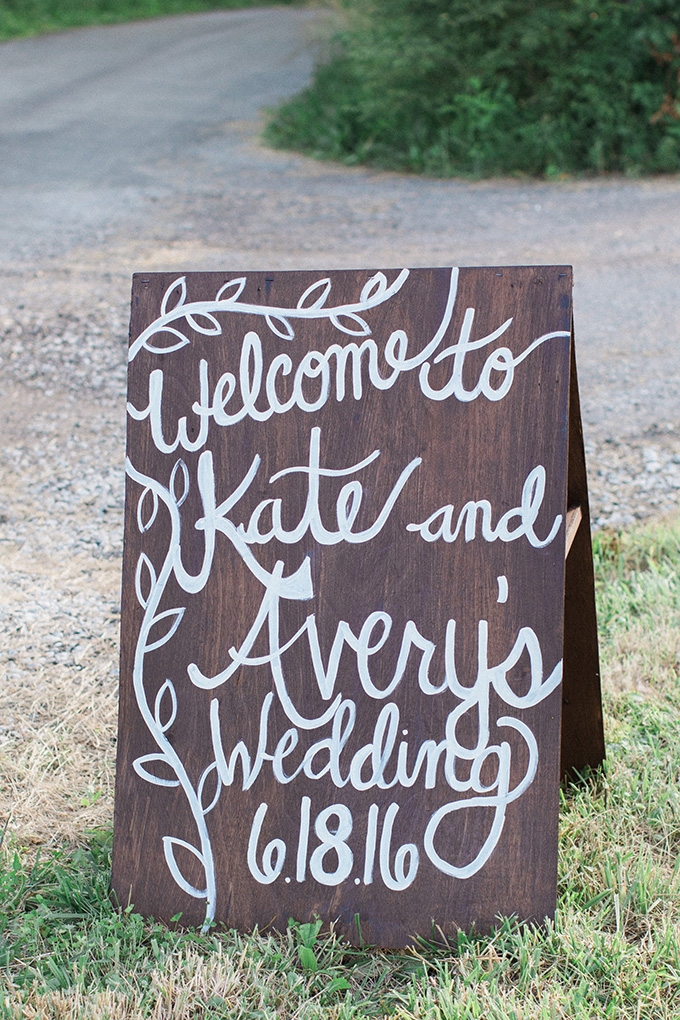 Welcome to
Kate and
Avery's
Wedding
6.18.16